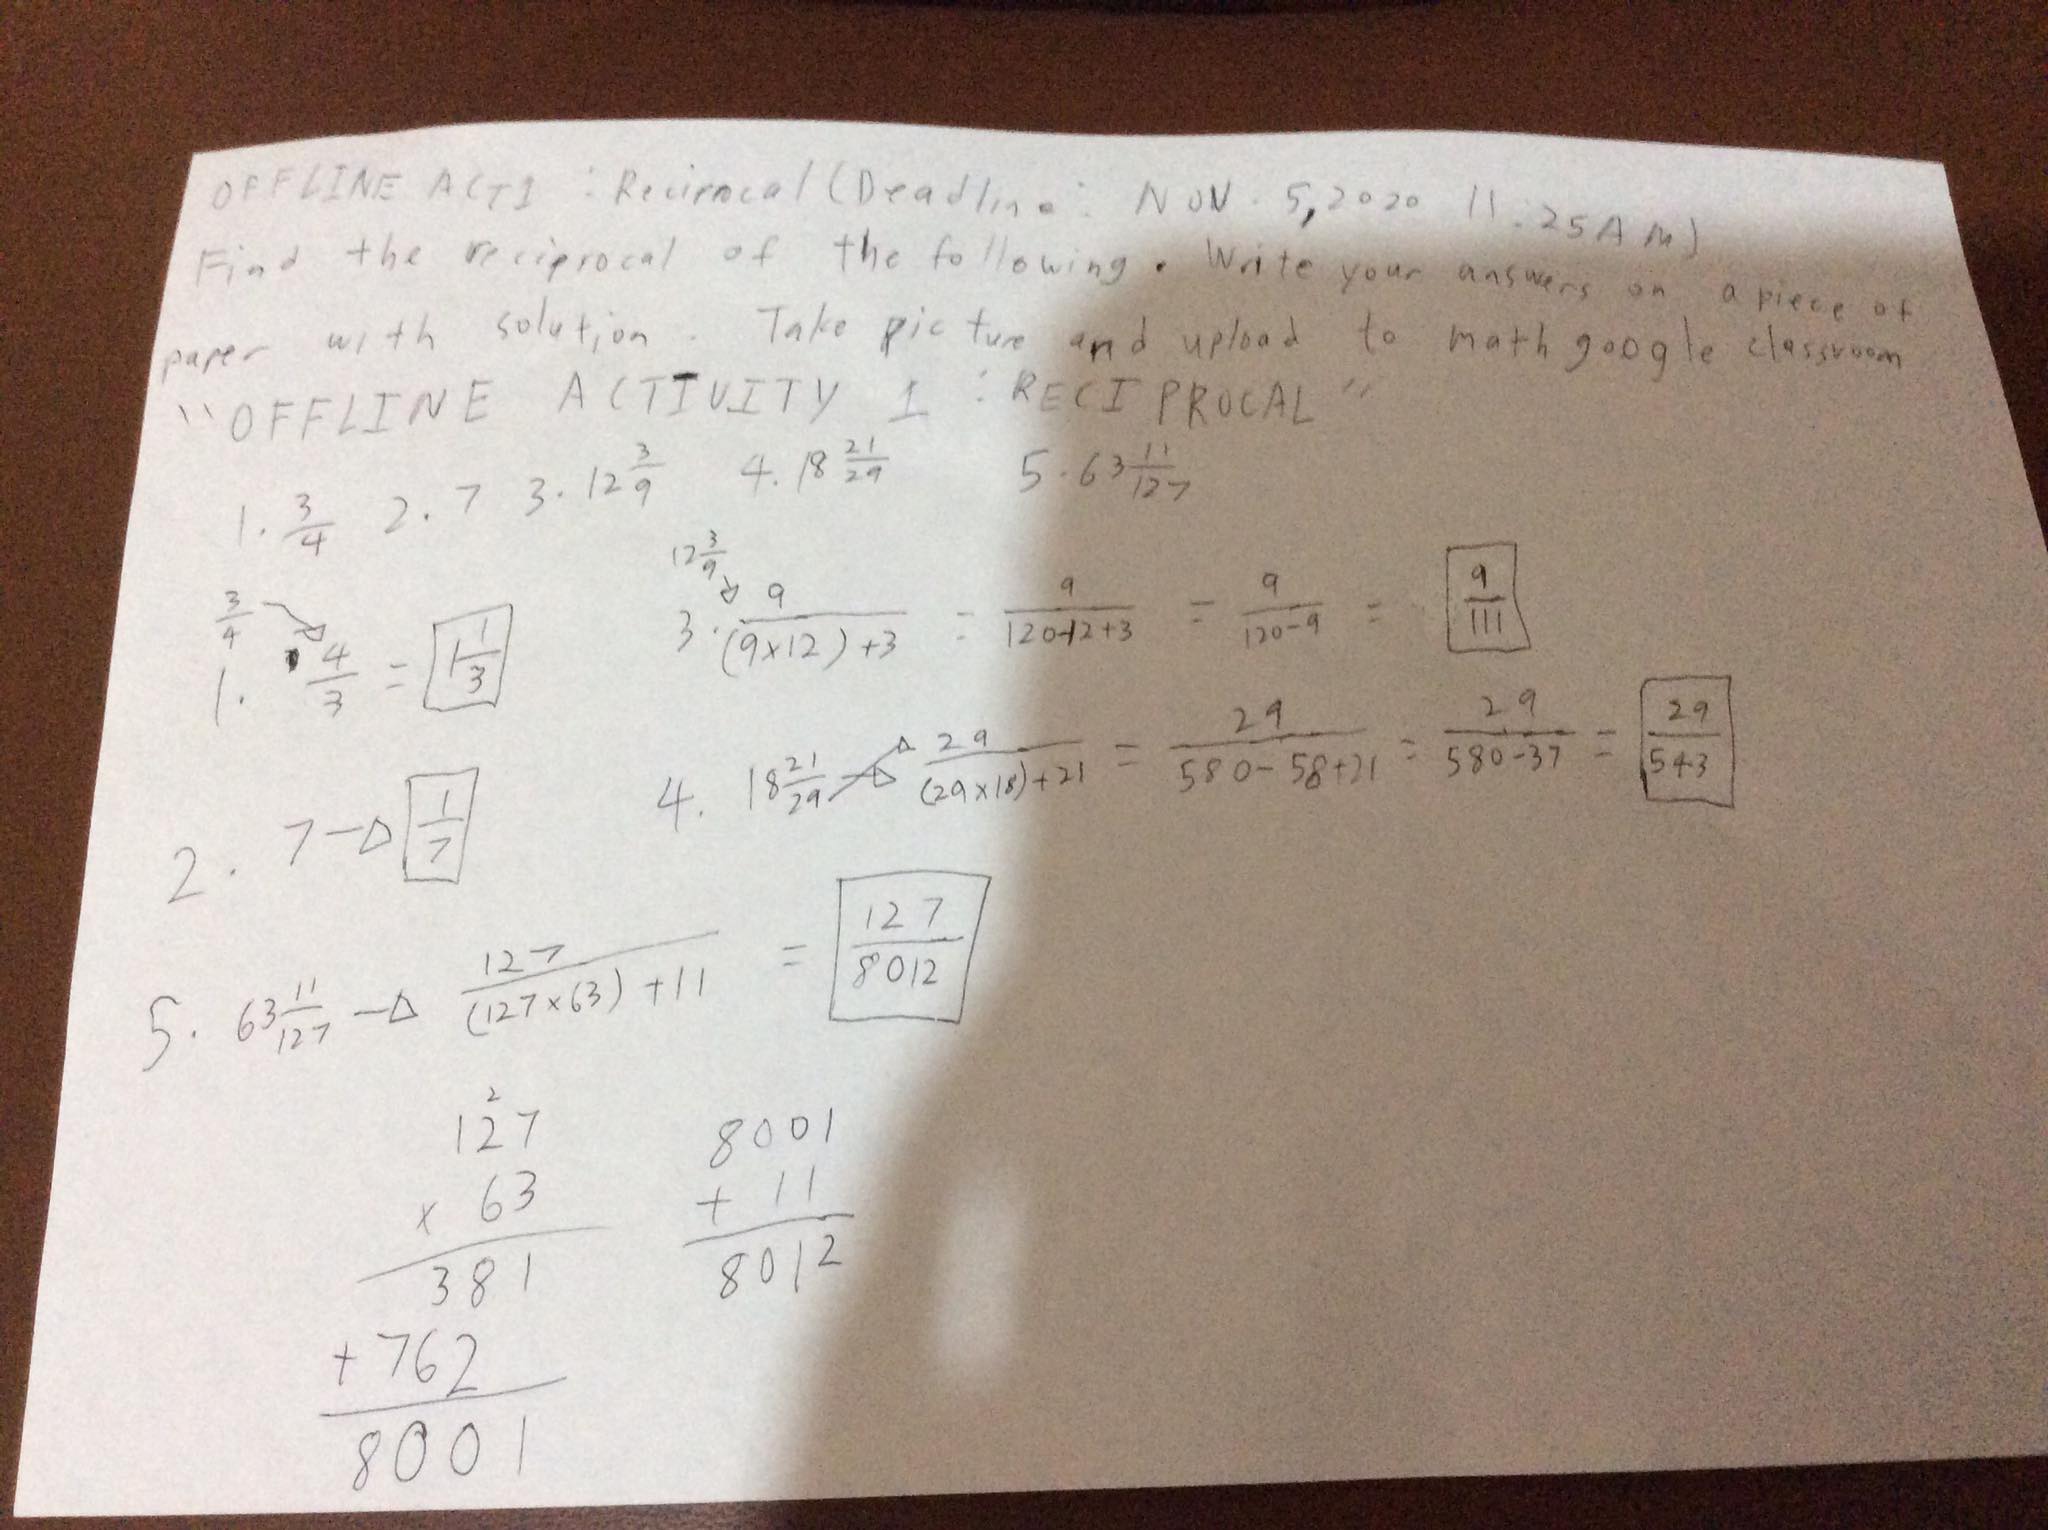 OFFLINE ACT1 : Reciprocal (Deadline: NOV. 5, 2020 11:25AM)
Find the reciprocal of the following. Write your answers on a piece of
paper with solution. Take picture and upload to math google classroom
"OFFLINE ACTIVITY 1 : RECIPROCAL"
1. 3/4 2. 7 3. 12 3/9 4. 18 21/29 5. 63 11/127
3/4
1. 4/3 = 1 1/3
12 3/9
3. 9/((9x12)+3) = 9/(120-12+3) = 9/(120-9) = 9/111
2. 7 → 1/7
4. 18 21/29 → 29/((29x18)+21) = 29/(580-58+21) = 29/(580-37) = 29/543
5. 63 11/127 → 127/((127x63)+11) = 127/8012
2
127
x 63
381
+ 762
8001
8001
+ 11
8012